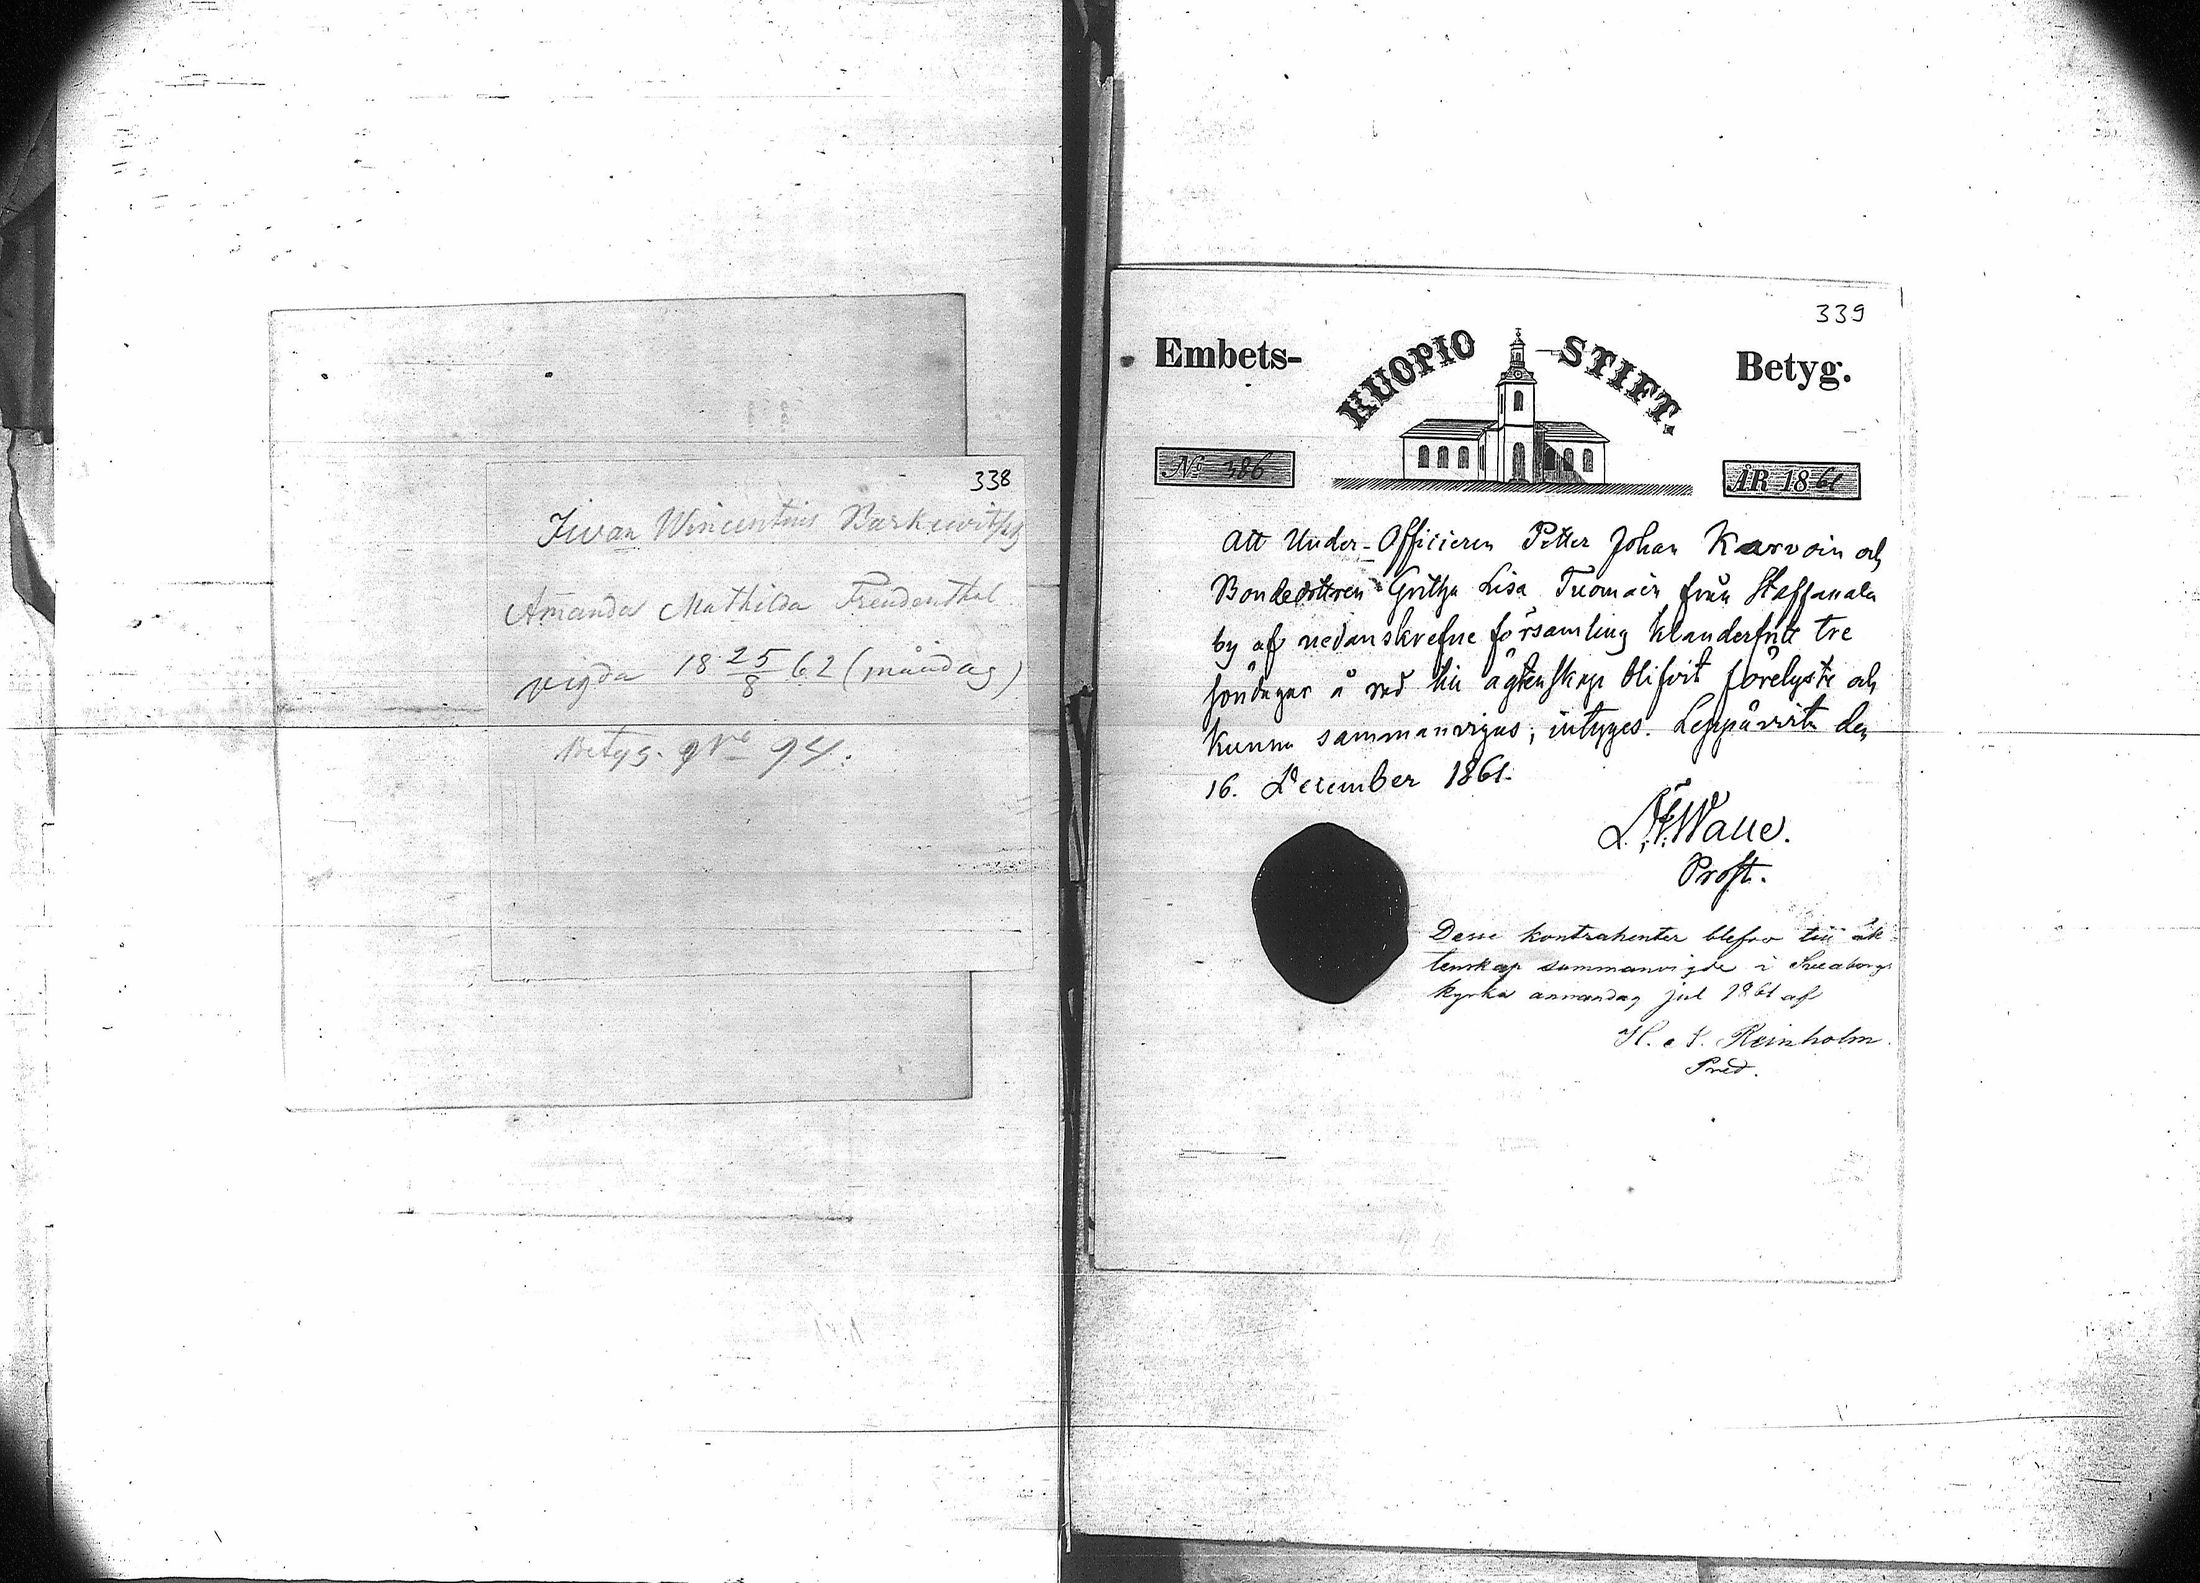 338
Iwan Wincentius Barkewitsch
Amanda Mathilda Freudenthal
vigda 18 25/8 62 (måndag)
Betyg. N:o 94.
339
Embets-
KUOPIO STIFT.
Betyg.
No 386
ÅR 1861
Att Under-Officieren Petter Johan Karvoin och
Bondedottren Gretha Lisa Tuomain från Staffanala
by af nedanskrefne församling klanderfritt tre
söndagar å rad till ägtenskap blifvit förelyste och
kunna sammanvigas, intyges. Leppävirta den
16. December 1861.
Walle.
Prost.
Desse kontrahenter blefvo till äk-
tenskap sammanvigde i Sveaborgs
kyrka annandag jul 1861 af
H. A. Reinholm.
Pred.